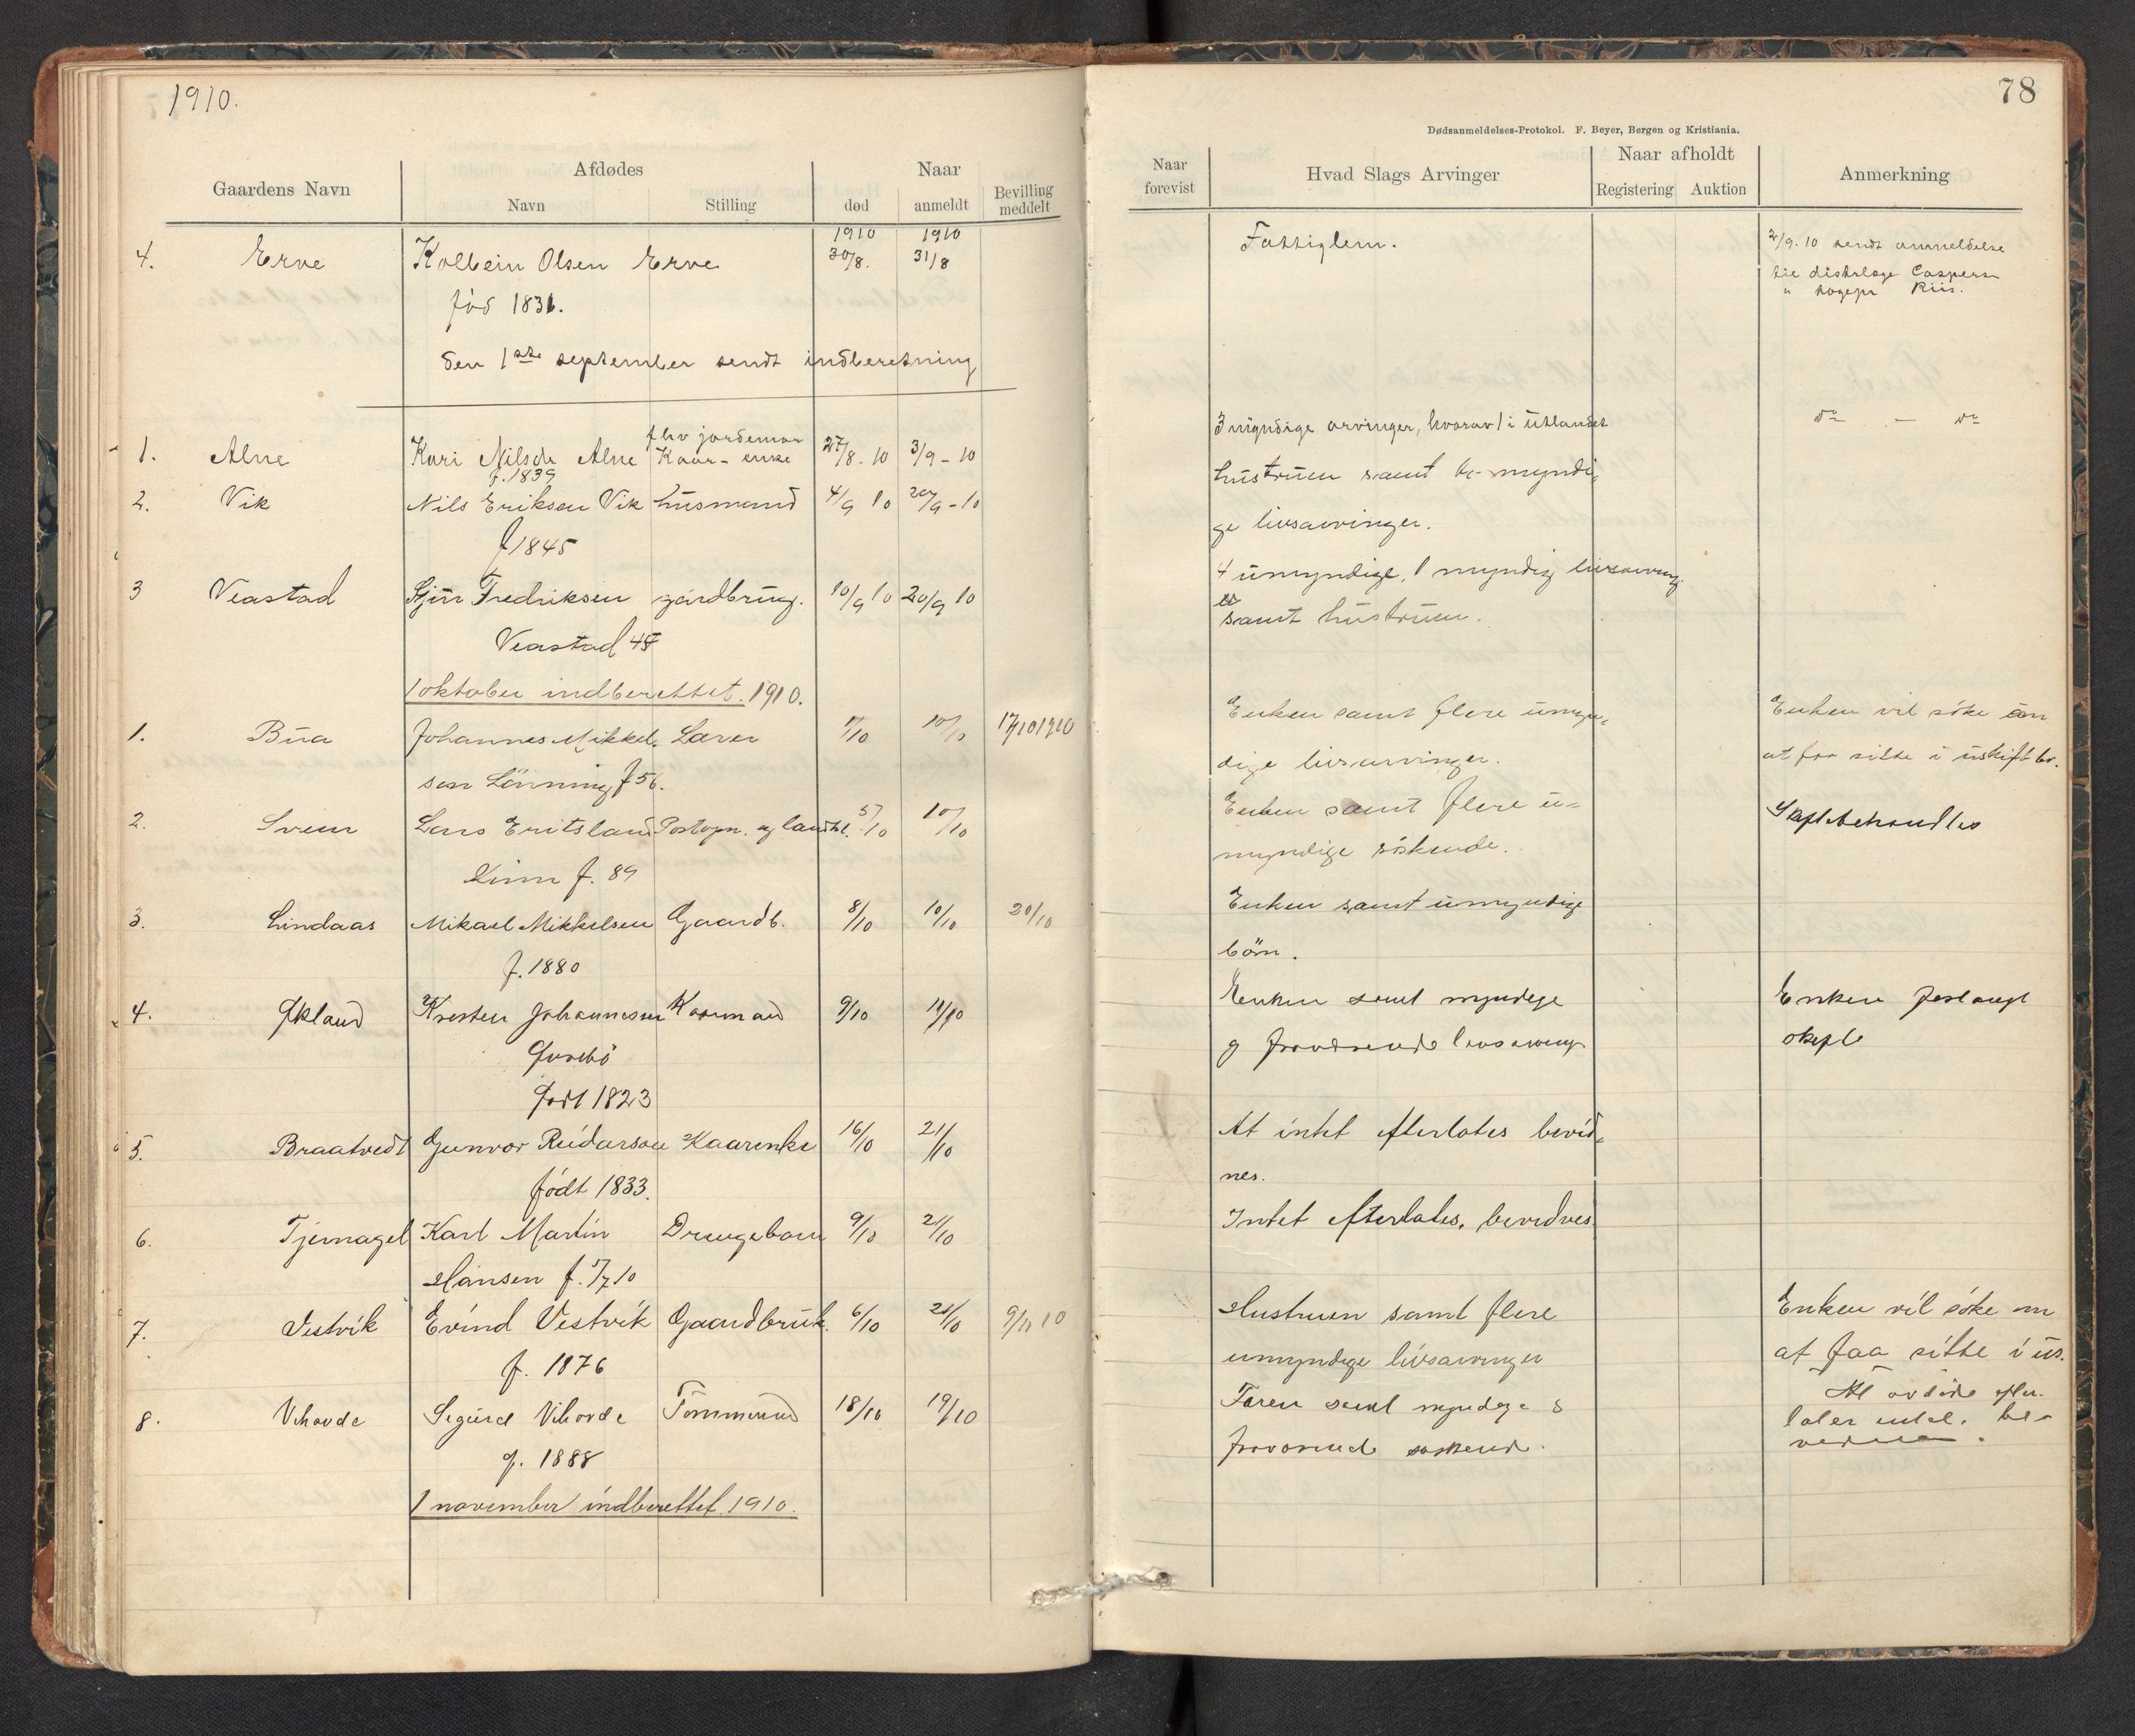 1910.
78
Dødsanmeldelses-Protokol. F. Beyer, Bergen og Kristiania.
Gaardens Navn
Afdødes
Navn
Stilling
Naar
død
anmeldt
Bevilling
meddelt
Naar
forevist
Hvad Slags Arvinger
Naar afholdt
Registering
Auktion
Anmerkning
1910 1910
4. Erve Kolbein Olsen Erve 30/8. 31/8 Fattiglem. 2/9.10 sendt anmeldelse
til distslæge
" sogepr Riis.
fød 1831.
den 1ste september sendt indberetning
fhv jordemor
1. Alne Kari Nilsdr Alne Kaar-enke 27/8.10 3/9-10 3 myndige arvinger, hvorav 1 i Utlandet do - do
f. 1839
2. Vik Nils Eriksen Vik husmand 4/9 10 20/9-10 hustruen samt myndi-
ge livsarvinger.
f 1845
3 Veastad Sjur Fredriksen gårdbrug. 10/9 10 20/9 10 4 umyndige, 1 myndig livsarving
er
samt hustruen.
Veastad
1 oktober indberettet. 1910.
1. Bua Johannes Mikkel- Lærer 10/10 17/10 1910 Enken samt flere umyn-
dige livsarvinger.
Enken vil söke om
at faa sitte i uskiftet bo.
sen Lönning f 56.
2. Lars Eritsland Postopn. og landh. 5/10 10/10 Enken samt flere u-
myndige söskende.
Skiftebehandles
Linn f. 89
3. Lindaas Mikael Mikkelsen Gaardb. 8/10 10/10 20/10 Enken samt umyndige
börn.
f. 1880
4. Økland Kresten Johannessen Kaarmand 9/10 Enken samt myndige
og fraværende livsarving
Enken forlangt
skifte
født 1823
5. Braatvedt Gunvor Reidarson Kaarenke 16/10 21/10 At intet efterlates bevid-
nes.
födt 1833.
6. Tjernagel Karl Martin Drengebarn 9/10 21/10 Intet efterlates, bevidnes
Hansen f. 5/7 10
7. Vestvik Evind Vestvik Gaardbruk. 6/10 21/10 9/11 10 Hustruen samt flere
umyndige livsarvinger
Enken vil söke om
at faa sitte i us.
f. 1876
8. Vihovde Sigurd Vihovde Tömmermd 18/10 19/10 Faren samt myndige &
fraværende söskende.
At avdöde efter-
later intet. be-
vidnes.
f. 1888
1 november indberettet 1910.